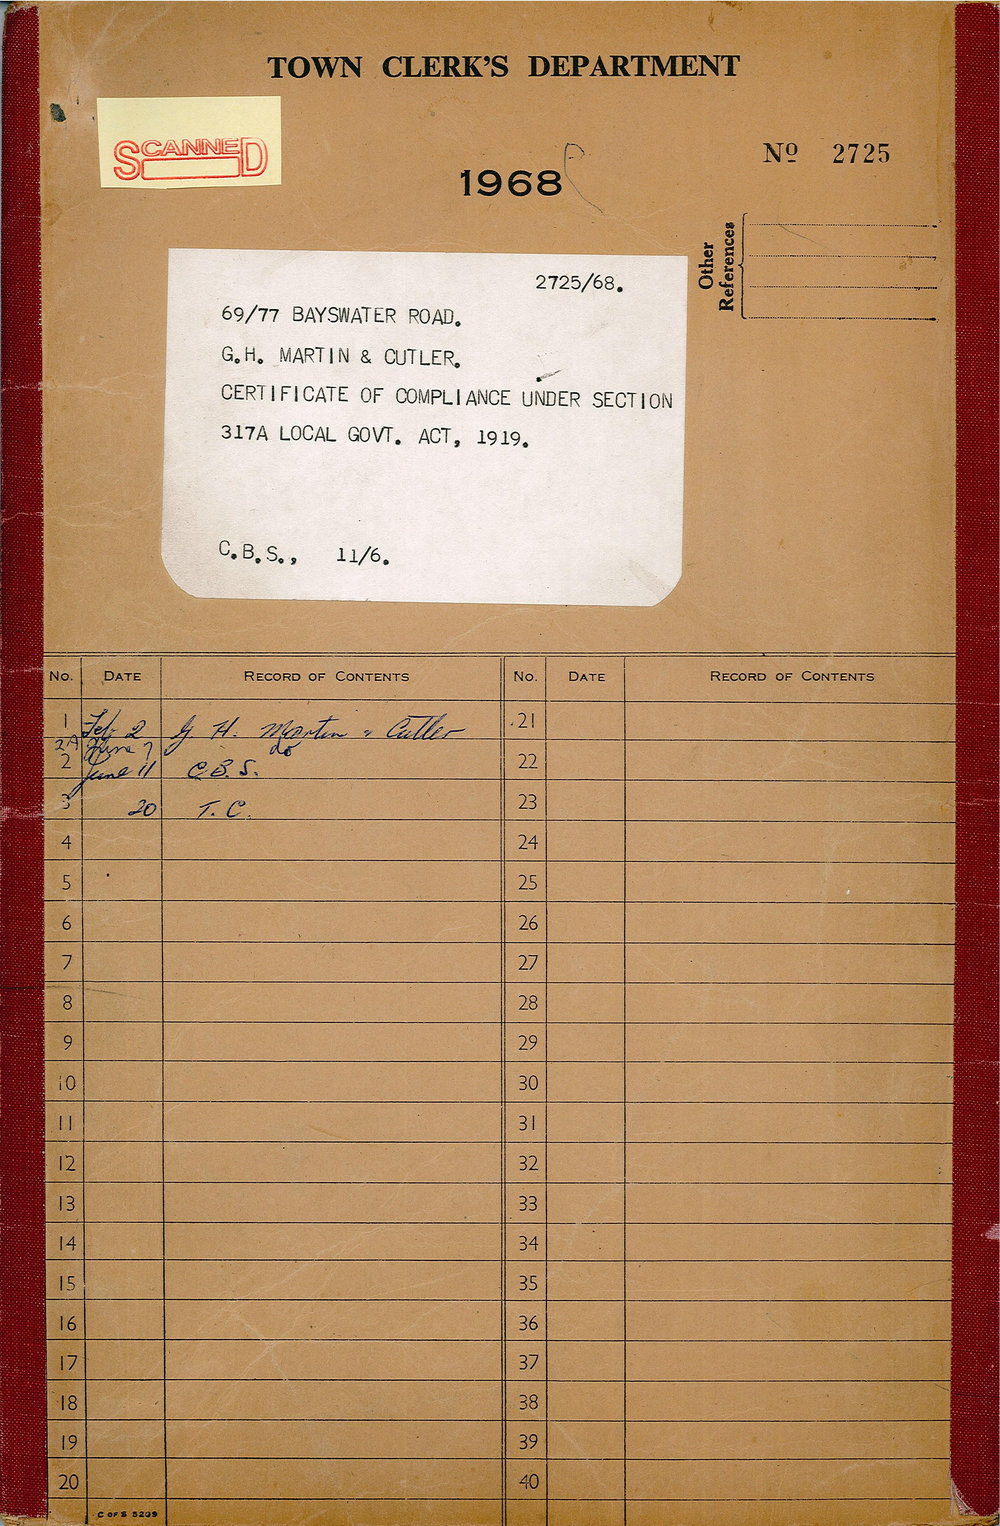 TOWN CLERK'S DEPARTMENT
SCANNED
Nº 2725
1968
Other References
2725/68.
69/77 BAYSWATER ROAD.
G.H. MARTIN & CUTLER.
CERTIFICATE OF COMPLIANCE UNDER SECTION
317A LOCAL GOVT. ACT, 1919.
C.B.S., 11/6.
No. DATE RECORD OF CONTENTS No. DATE RECORD OF CONTENTS
1 Feb 2 G H. Martin & Cutler 21
2A June 7 do
2 June 11 C.B.S. 22
3 20 T.C. 23
4 24
5 25
6 26
7 27
8 28
9 29
10 30
11 31
12 32
13 33
14 34
15 35
16 36
17 37
18 38
19 39
20 40
C OF S 5209